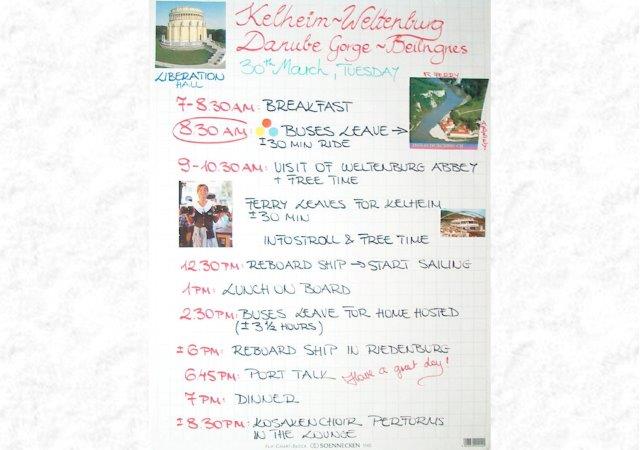 Kelheim~Weltenburg
Danube Gorge~Beilngries
30th March, TUESDAY
LIBERATION
HALL
7-8.30AM: BREAKFAST
8.30AM: BUSES LEAVE →
± 30 MIN RIDE
FERRY
9-10.30AM: VISIT OF WELTENBURG ABBEY
+ FREE TIME
FERRY LEAVES FOR KELHEIM
± 30 MIN
INFOSTROLL & FREE TIME
12.30PM: REBOARD SHIP → START SAILING
1PM: LUNCH ON BOARD
2.30PM: BUSES LEAVE FOR HOME HOSTED
(± 3 ½ HOURS)
± 6PM: REBOARD SHIP IN RIEDENBURG
6.45PM: PORT TALK Have a great day!
7PM: DINNER
± 8.30PM: KOSAKENCHOIR PERFORMS
IN THE LOUNGE
SOENNECKEN